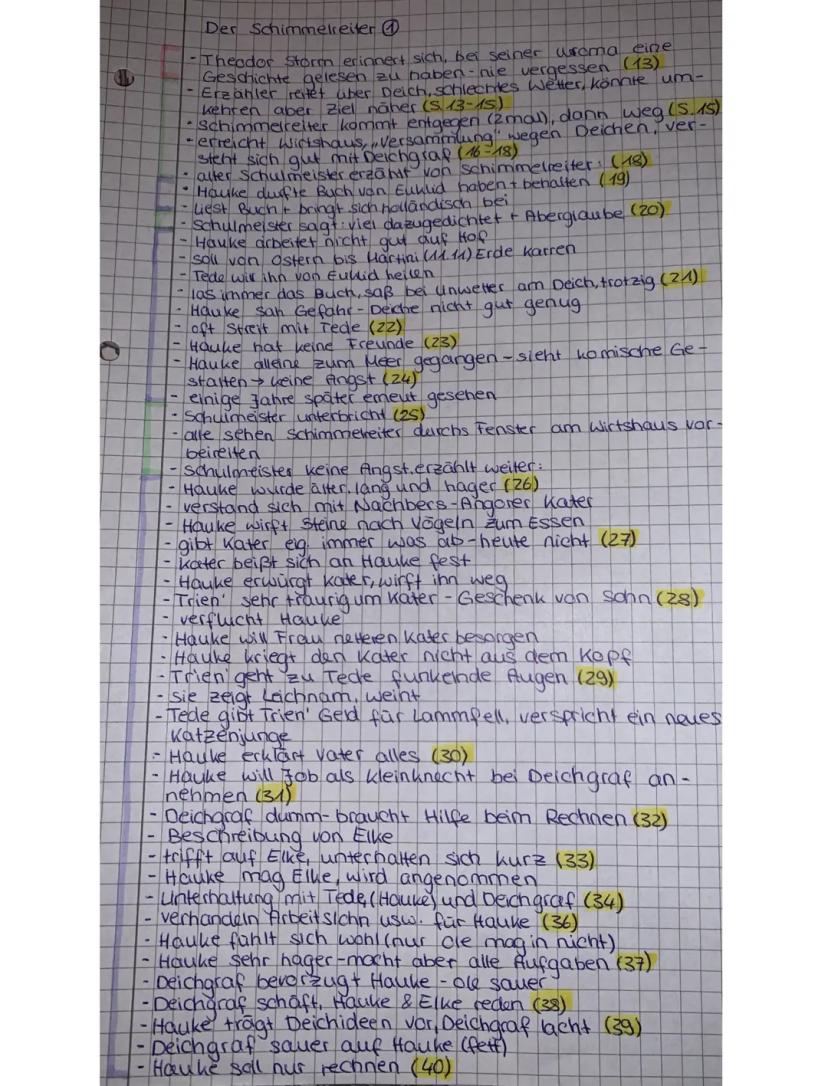 Der Schimmelreiter ①
- Theodor Storm erinnert sich, bei seiner Uroma eine
Geschichte gelesen zu haben - nie vergessen (13)
- Erzähler reitet über Deich, schlechtes Wetter, könnte um-
kehren aber Ziel näher (S.13-15)
- Schimmelreiter kommt entgegen (2mal), dann weg (S.15)
- erreicht Wirtshaus, „Versammlung" wegen Deichen, ver-
steht sich gut mit Deichgraf (16-18)
- alter Schulmeister erzählt von Schimmelreiter: (18)
- Hauke durfte Buch von Euklid haben + behalten (19)
- Liest Buch + bringt sich holländisch bei
- Schulmeister sagt: viel dazugedichtet + Aberglaube (20)
- Hauke arbeitet nicht gut auf Hof
- soll von Ostern bis Martini (11.11) Erde karren
- Tede will ihn von Euklid heilen
- las immer das Buch, saß bei Unwetter am Deich, trotzig (21)
- Hauke sah Gefahr - Deiche nicht gut genug
- oft Streit mit Tede (22)
- Hauke hat keine Freunde (23)
- Hauke alleine zum Meer gegangen - sieht komische Ge-
stalten → keine Angst (24)
- einige Jahre später erneut gesehen
- Schulmeister unterbricht (25)
- alle sehen Schimmelreiter durchs Fenster am Wirtshaus vor-
beireiten
- Schulmeister keine Angst, erzählt weiter:
- Hauke wurde älter, lang und hager (26)
- verstand sich mit Nachbers-Angorer Kater
- Hauke wirft Steine nach Vögeln zum Essen
- gibt Kater eig. immer was ab - heute nicht (27)
- Kater beißt sich an Hauke fest
- Hauke erwürgt Kater, wirft ihn weg
- Trien' sehr traurig um Kater - Geschenk von Sohn (28)
- verflucht Hauke
- Hauke will Frau netteren Kater besorgen
- Hauke kriegt den Kater nicht aus dem Kopf
- Trien' geht zu Tede funkelnde Augen (29)
- sie zeigt Leichnam, weint
- Tede gibt Trien' Geld für Lammfell, verspricht ein neues
Katzenjunge
- Hauke erklärt Vater alles (30)
- Hauke will Job als Kleinknecht bei Deichgraf an-
nehmen (31)
- Deichgraf dumm - braucht Hilfe beim Rechnen (32)
- Beschreibung von Elke
- trifft auf Elke, unterhalten sich kurz (33)
- Hauke mag Elke, wird angenommen
- Unterhaltung mit Tede, (Hauke) und Deichgraf (34)
- verhandeln Arbeitslohn usw. für Hauke (36)
- Hauke fühlt sich wohl (nur Ole mag in nicht)
- Hauke sehr hager - macht aber alle Aufgaben (37)
- Deichgraf bevorzugt Hauke - Ole sauer
- Deichgraf schäft, Hauke & Elke reden (38)
- Hauke trägt Deichideen vor, Deichgraf lacht (39)
- Deichgraf sauer auf Hauke (fett)
- Hauke soll nur rechnen (40)